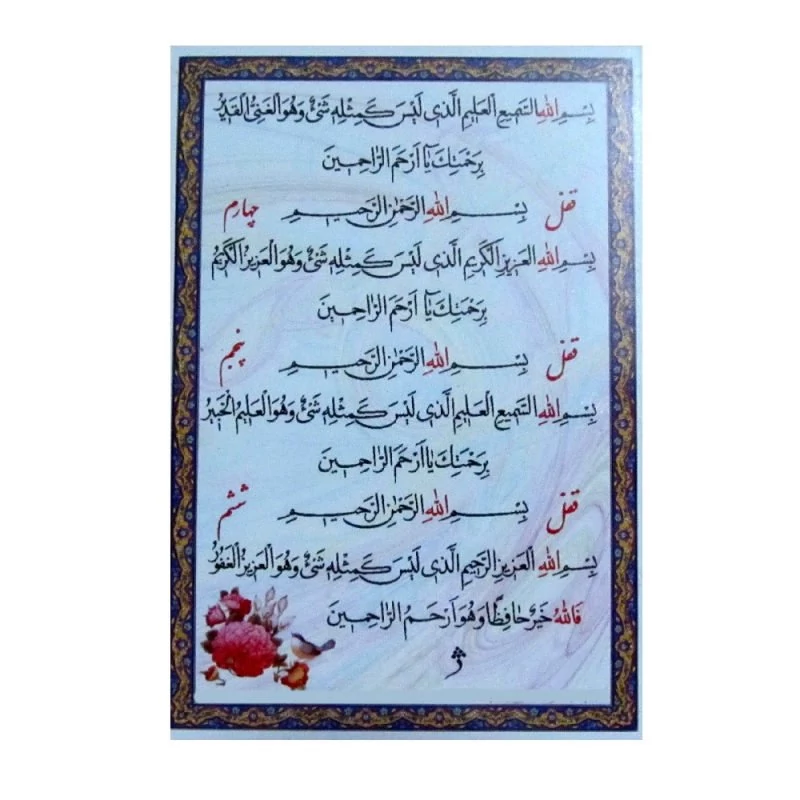 بِسْمِ اللهِ السَّمِيعِ الْعَلِيمِ الَّذِى لَيْسَ كَمِثْلِهِ شَىْءٌ وَهُوَ الْغَنِىُّ الْقَدِيرُ
بِرَحْمَتِكَ يَا اَرْحَمَ الرَّاحِمِينَ
قفل بِسْمِ اللهِ الرَّحْمٰنِ الرَّحِيمِ چهارم
بِسْمِ اللهِ الْعَزِيزِ الْكَرِيمِ الَّذِى لَيْسَ كَمِثْلِهِ شَىْءٌ وَهُوَ الْعَزِيزُ الْكَرِيمُ
بِرَحْمَتِكَ يَا اَرْحَمَ الرَّاحِمِينَ
قفل بِسْمِ اللهِ الرَّحْمٰنِ الرَّحِيمِ پنجم
بِسْمِ اللهِ السَّمِيعِ الْعَلِيمِ الَّذِى لَيْسَ كَمِثْلِهِ شَىْءٌ وَهُوَ الْعَلِيمُ الْخَبِيرُ
بِرَحْمَتِكَ يَا اَرْحَمَ الرَّاحِمِينَ
قفل بِسْمِ اللهِ الرَّحْمٰنِ الرَّحِيمِ ششم
بِسْمِ اللهِ الْعَزِيزِ الرَّحِيمِ الَّذِى لَيْسَ كَمِثْلِهِ شَىْءٌ وَهُوَ الْعَزِيزُ الْغَفُورُ
فَاللهُ خَيْرٌ حَافِظًا وَهُوَ اَرْحَمُ الرَّاحِمِينَ